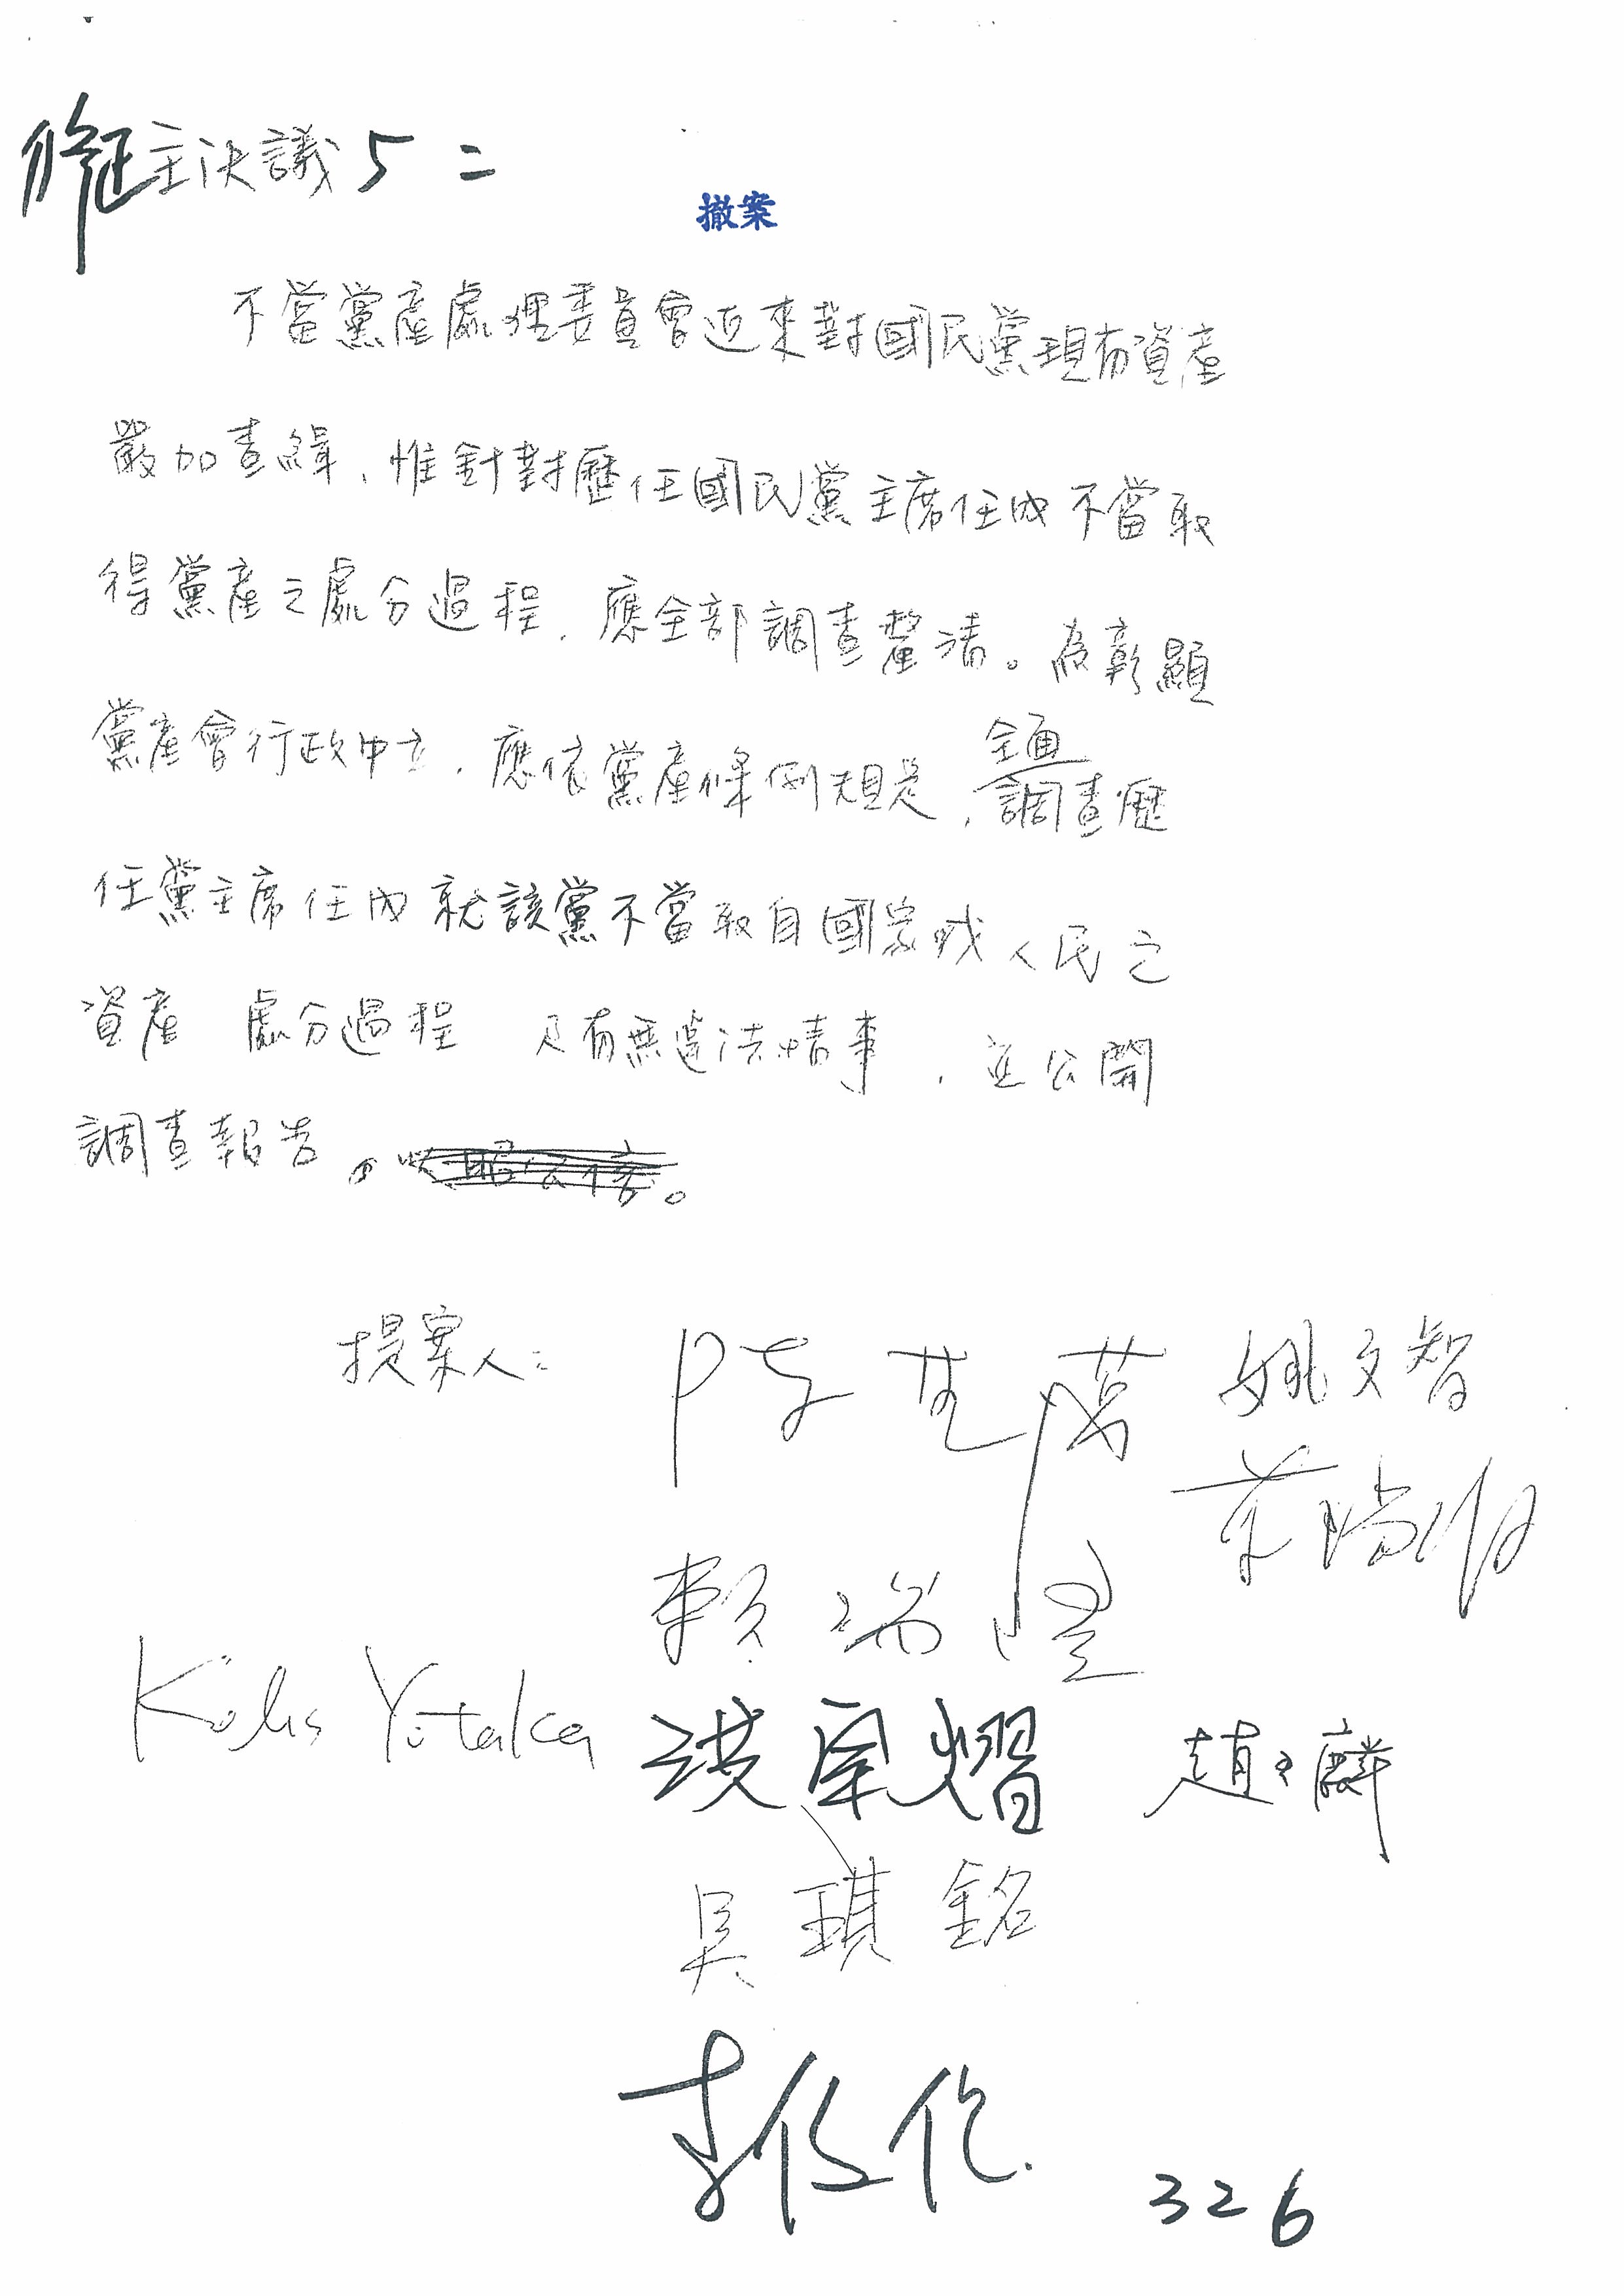 修正主決議5二
撤案
不當黨產處理委員會近來對國民黨現有資產
嚴加查緝，惟針對歷任國民黨主席任內不當取
得黨產之處分過程，應全部調查釐清。為彰顯
黨產會行政中立，應依黨產條例規定，全面調查歷
任黨主席任內就該黨不當取自國家或人民之
資產 處分過程 及有無違法情事，並公開
調查報告。
提案人：
陳其邁 姚文智
葉
賴瑞隆
Kolas Yotaka 洪宗熠 趙天麟
吳琪銘
李俊俋
326